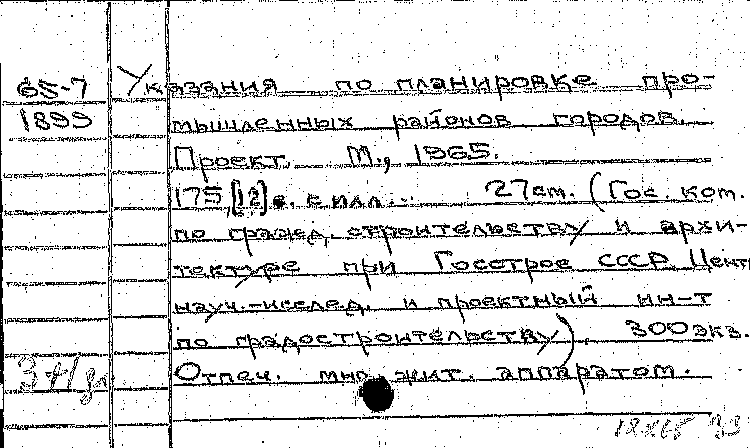 65-7 Указания по планировке про-
1899 мышленных районов городов.
Проект. М., 1965.
175 [12] с. с илл. 27 см. (Гос. ком.
по гражд. строительству и архи-
тектуре при Госстрое СССР. Центр
науч.-исслед. и проектный ин-т
по градостроительству). 300 экз.
Отпеч. мнр. аппаратом.